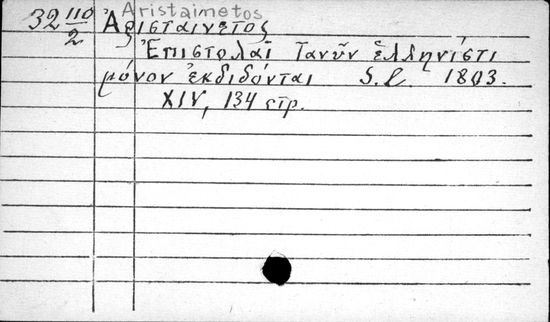 Aristaimetos
32 110/2 Ἀρισταίνετος
Ἐπιστολαὶ τανῦν ἑλληνιστὶ
μόνον ἐκδιδόνται S. l. 1803.
XIV, 134 стр.